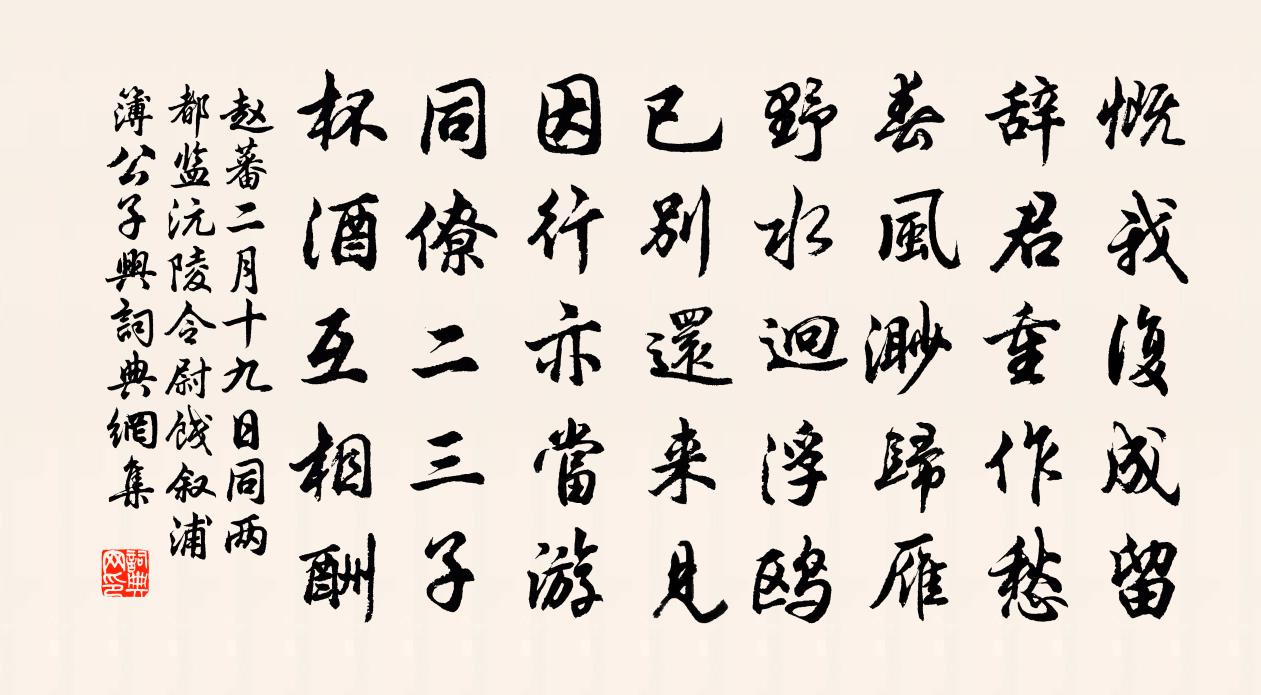 慨我復成留
辞君重作愁
春風渺歸雁
野水迥浮鸥
已别還来見
因行亦當游
同僚二三子
杯酒互相酬
赵蕃二月十九日同两
都监沅陵令尉饯叙浦
簿公子興詞典網集
詞典网印